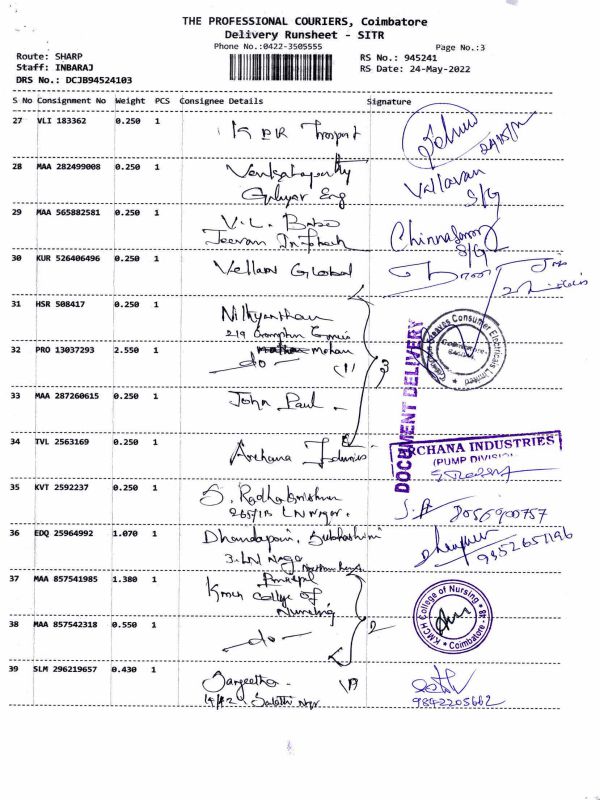 THE PROFESSIONAL COURIERS, Coimbatore
Delivery Runsheet - SITR
Phone No.:0422-3505555
Page No.:3
Route: SHARP
Staff: INBARAJ
DRS No.: DCJB94524103
RS No.: 945241
RS Date: 24-May-2022
S No Consignment No Weight PCS Consignee Details Signature
27 VLI 183362 0.250 1
28 MAA 282499008 0.250 1 Vallavan
S/G
29 MAA 565882581 0.250 1 V.L. Babo
Chinnasamy
S/G
30 KUR 526406496 0.250 1 Vellan Global
31 HSR 508417 0.250 1 Nithyanthan
219
32 PRO 13037293 2.550 1 Mohan
-do- (1) 3
Crompton Greaves Consumer Electricals Limited
DOCUMENT DELIVERY
33 MAA 287260615 0.250 1 John Paul
34 TVL 2563169 0.250 1 Archana
ARCHANA INDUSTRIES
(PUMP DIVISION)
35 KVT 2592237 0.250 1 S. Radhakrishnan
LN Nagar. 8056900757
36 EDQ 25964992 1.070 1 Dhandapani, Subhashini
3. LN Naga 9352651196
37 MAA 857541985 1.380 1 Principal
Kmch College of
Nursing
38 MAA 857542318 0.550 1 -do- 2
KMCH College of Nursing
Coimbatore - 48
39 SLM 296219657 0.430 1 Sangeetha
9842205662